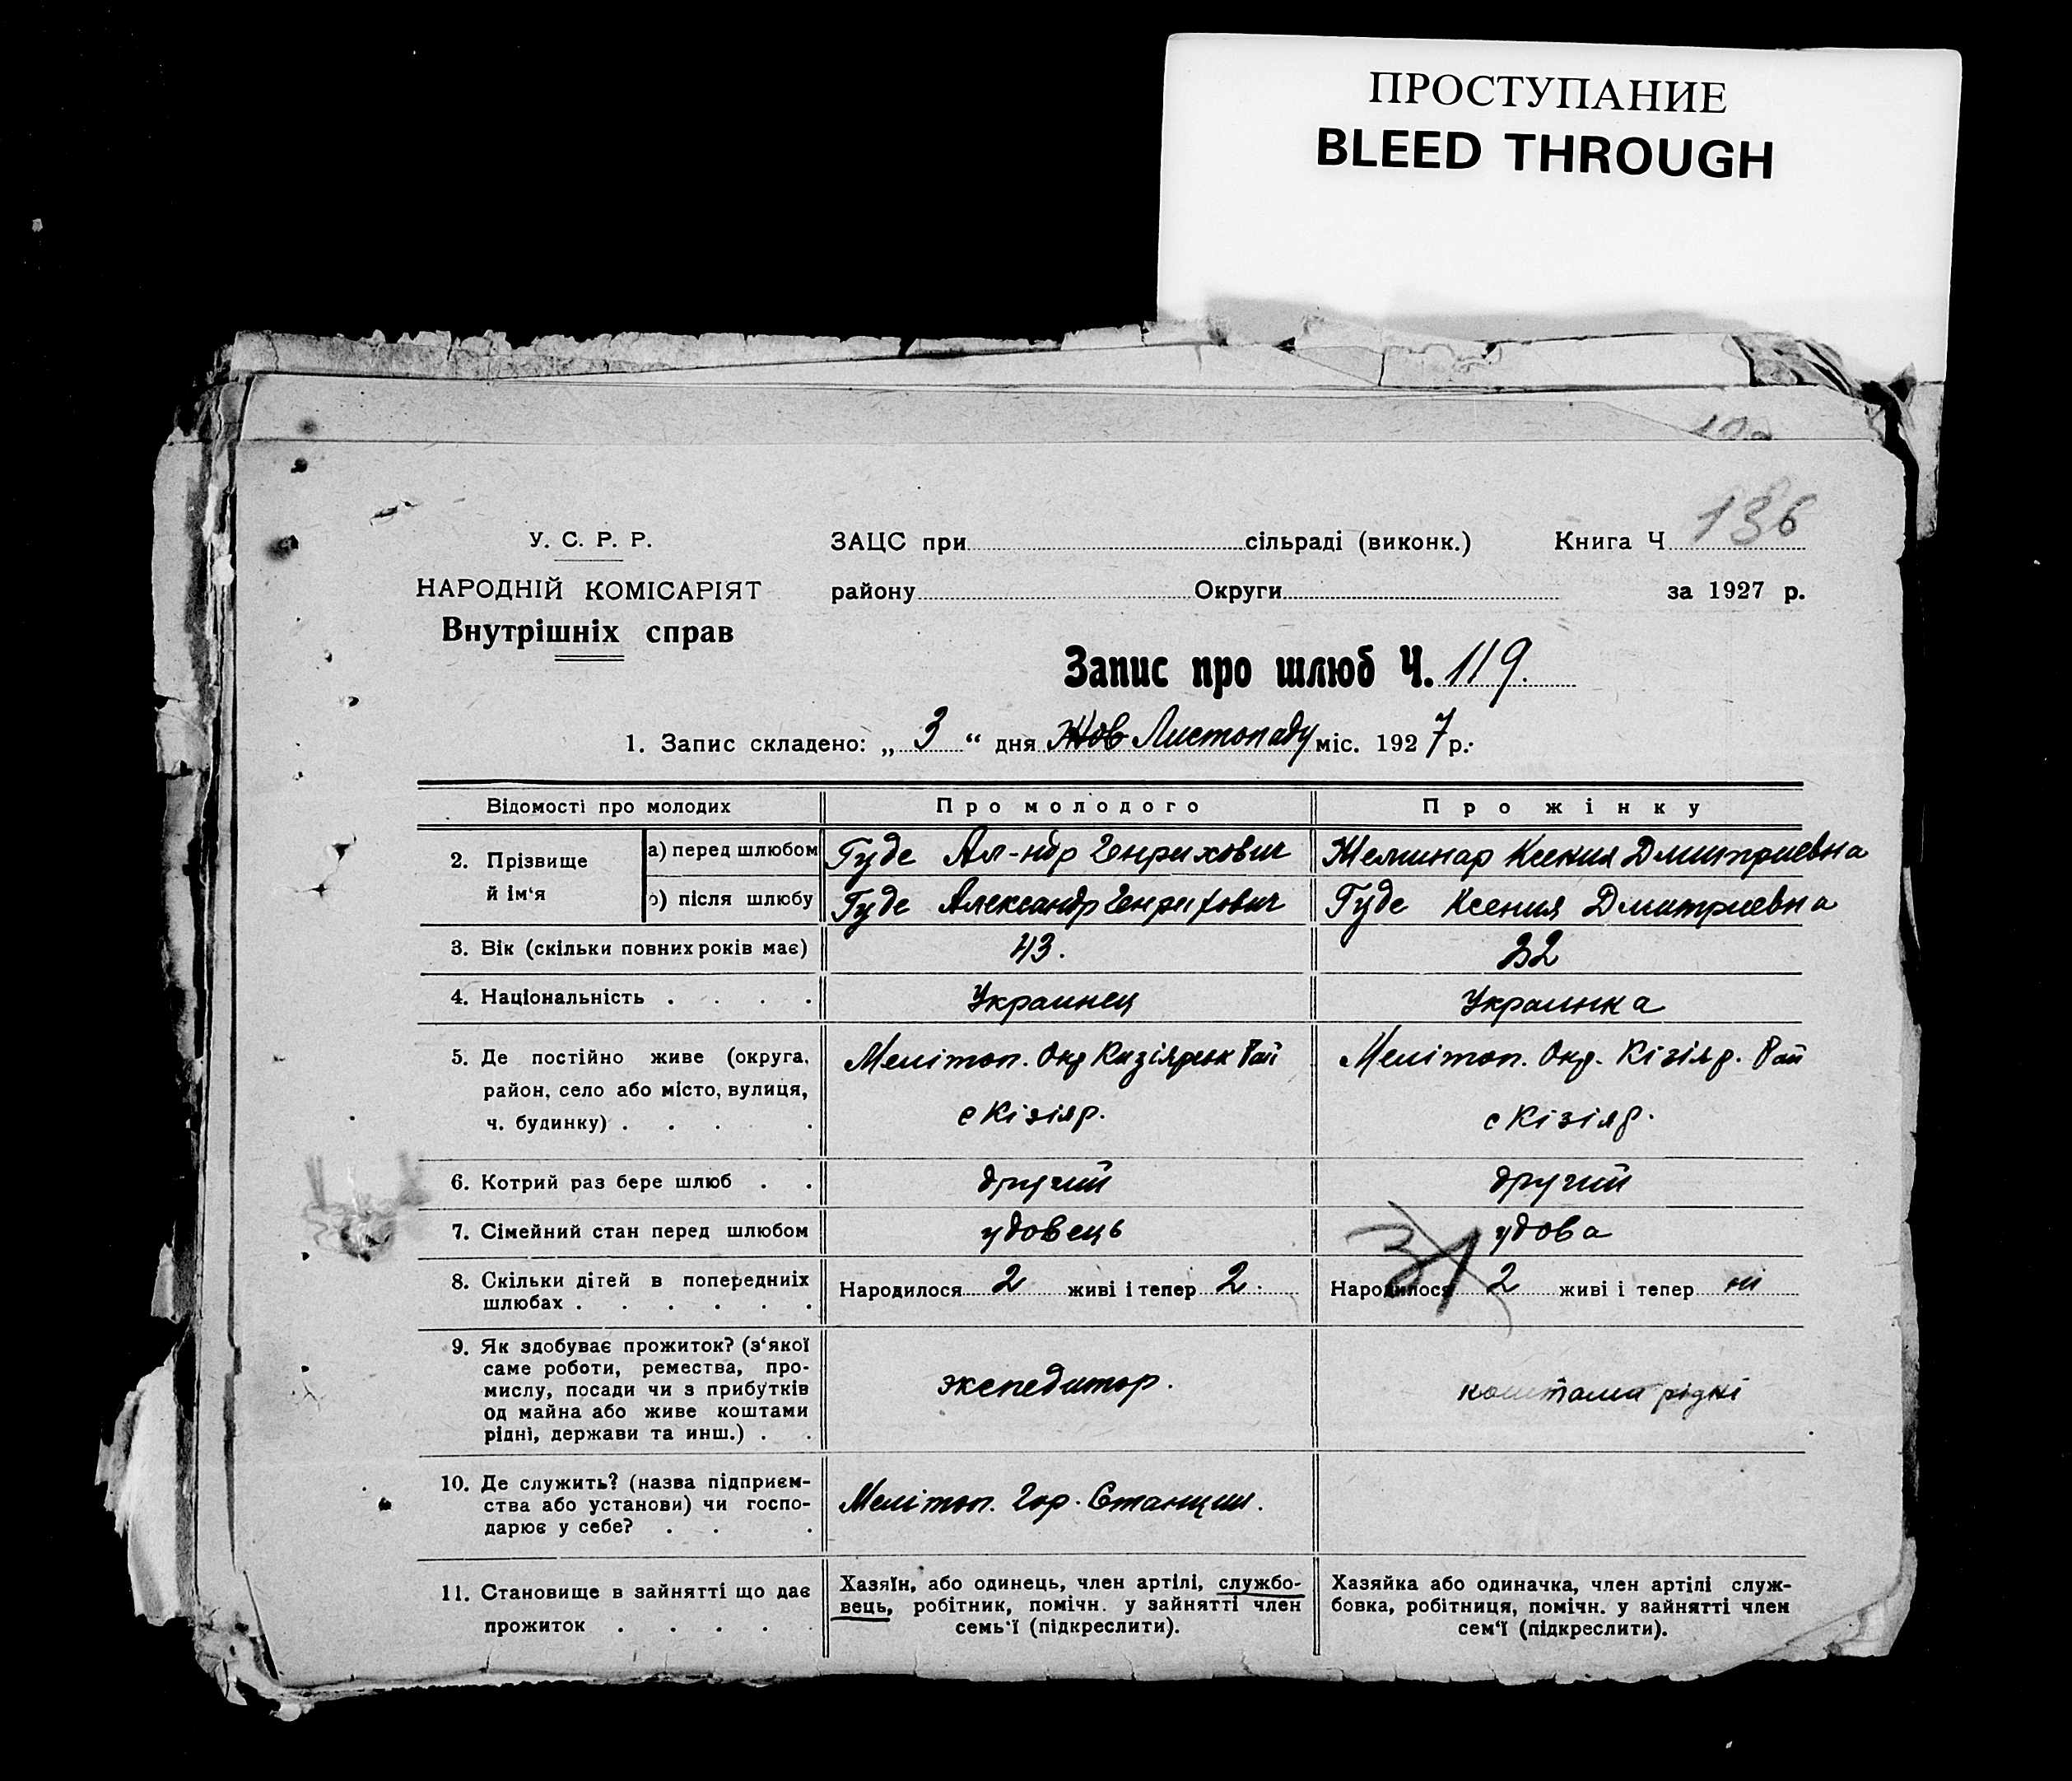 ПРОСТУПАНИЕ
BLEED THROUGH
136
У. С. Р. Р.
НАРОДНІЙ КОМІСАРІЯТ
Внутрішніх справ
ЗАЦС при сільраді (виконк.) Книга Ч
району Округи за 1927 р.
Запис про шлюб Ч. 119.
1. Запис складено: „ 3 “ дня Жов Листопаду міс. 1927 р.
Відомості про молодих
Про молодого
Про жінку
2. Прізвище й ім‘я
а) перед шлюбом
Гуде Ал-ндр Генрихович
Ксения Дмитриевна
після шлюбу
Гуде Александр Генрихович
Гуде Ксения Дмитриевна
3. Вік (скільки повних років має)
43.
32
4. Національність . . . .
Украинец
Украинка
5. Де постійно живе (округа,
район, село або місто, вулиця,
ч. будинку) . . . .
Мелітоп. Окр Кизіярськ Рай
с Кізіяр.
Мелітоп. Окр. Кізіяр. Рай
с Кізіяр.
6. Котрий раз бере шлюб . .
другий
другий
7. Сімейний стан перед шлюбом
удовець
удова
31
8. Скільки дітей в попередніх
шлюбах . . . . . .
Народилося 2 живі і тепер 2.
Народилося 2 живі і тепер ні
9. Як здобуває прожиток? (з‘якої
саме роботи, ремества, про-
мислу, посади чи з прибутків
од майна або живе коштами
рідні, держави та инш.) . .
экспедитор.
коштами рідні
10. Де служить? (назва підприєм-
ства або установи) чи госпо-
дарює у себе? . . .
Мелітоп. Гор. Станции.
11. Становище в зайнятті що дає
прожиток . . . . .
Хазяїн, або одинець, член артілі, службо-
вець, робітник, помічн. у зайнятті член
семь‘ї (підкреслити).
Хазяйка або одиначка, член артілі служ-
бовка, робітниця, помічн. у зайнятті член
сем‘ї (підкреслити).